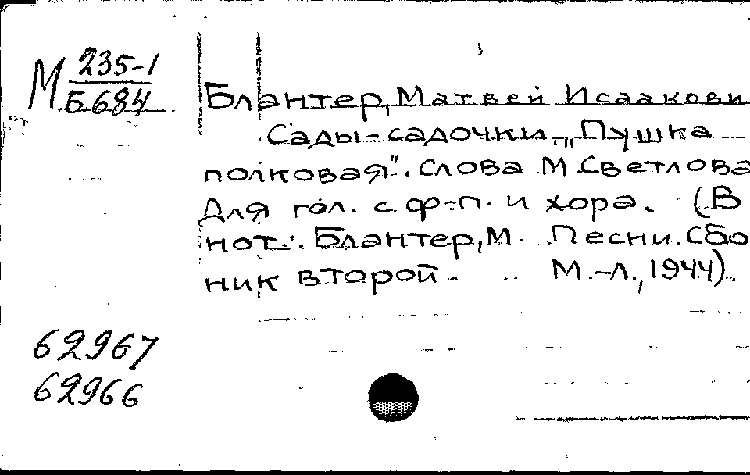 М 235-1
Б684
Блантер, Матвей Исаакови
Сады-садочки. „Пушка
полковая". Слова М Светлова
Для гол. с ф-п. и хора. (В
нот.: Блантер, М. Песни. Сбо
ник второй. М.-Л., 1944).
62967
62966